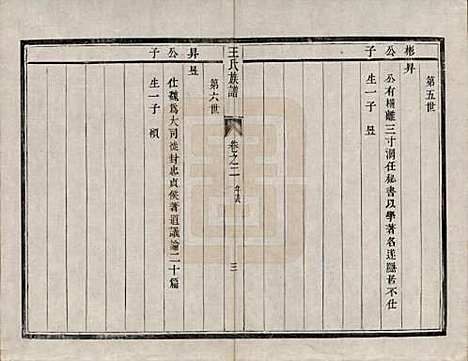 第五世
彬公子
昇
公有楊離三寸澗任秘書以學著名遂隱居不仕
生一子 昱
王氏族譜
卷之二 年表
三
第六世
昇公子
昱
仕魏爲大司徒封忠貞侯著道議論二十篇
生一子 頎